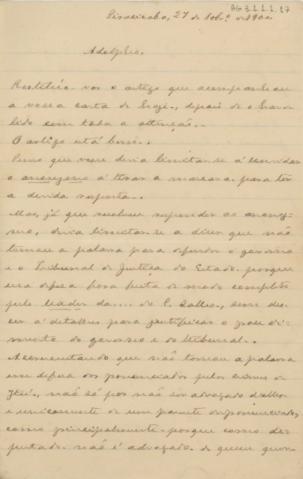 AG 3.1.1.1.17
Piracicaba, 27 de 1900
Adolpho.
Restituo-vos o artigo que acompanhou
a vossa carta de hoje, depois de o haver
lido com toda a attenção.
O artigo está bom.
Penso que voce devia limitar-se á convidar
o anonymo á tirar a mascara para ter
a devida resposta.
Mas, já que resolveu responder ao anony-
mo, devia limitar-se a dizer que não
tomou a palavra para defender o governo
e o Tribunal de Justiça do Estado, porque
essa defesa fora feita de modo completo
pelo leader da.... do C. Salles, sem des-
cer á detalhes para justificar o procedi-
mento do governo e do tribunal.
Accrescentando que não tomou a palavra
em defesa dos pronunciados pelos crimes de
Jahú, não só por não ser advogado d'elles
e unicamente de um parente do pronunciado,
como principalmente porque como de-
putado não é advogado de quem quer